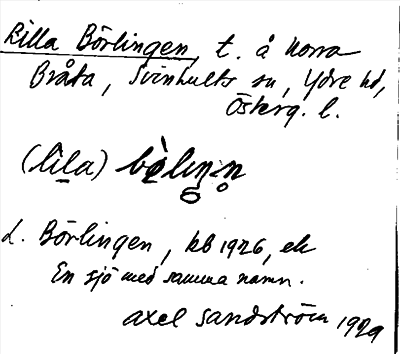 Lilla Börlingen, t. å Norra
Bråta, Svinhults sn, Ydre hd,
Österg. l.
(lila) bèliŋn̥
L. Börlingen, kb 1926, ek
En sjö med samma namn.
Axel Sandström 1929